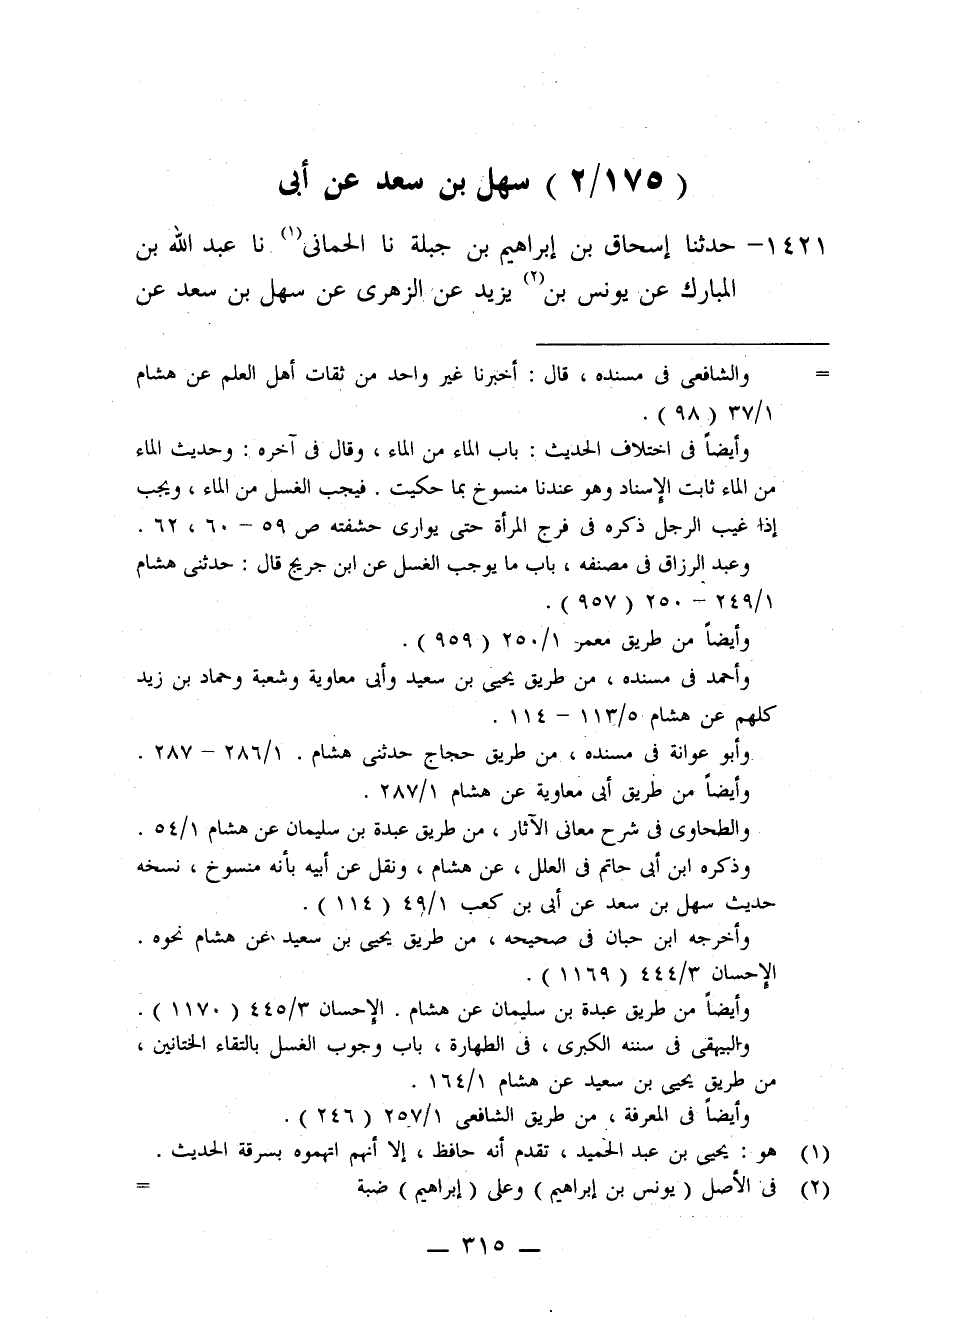 ( ٢/١٧٥ ) سهل بن سعد عن أبى
١٤٢١- حدثنا إسحاق بن إبراهيم بن جبلة نا الحمانى(١) نا عبد الله بن
المبارك عن يونس بن(٢) يزيد عن الزهرى عن سهل بن سعد عن
= والشافعى فى مسنده ، قال : أخبرنا غير واحد من ثقات أهل العلم عن هشام
٣٧/١ ( ٩٨ ) .
وأيضاً فى اختلاف الحديث : باب الماء من الماء ، وقال فى آخره : وحديث الماء
من الماء ثابت الإسناد وهو عندنا منسوخ بما حكيت . فيجب الغسل من الماء ، ويجب
إذا غيب الرجل ذكره فى فرج المرأة حتى يوارى حشفته ص ٥٩ – ٦٠ ، ٦٢ .
وعبد الرزاق فى مصنفه ، باب ما يوجب الغسل عن ابن جريج قال : حدثنى هشام
٢٤٩/١ – ٢٥٠ ( ٩٥٧ ) .
وأيضاً من طريق معمر ٢٥٠/١ ( ٩٥٩ ) .
وأحمد فى مسنده ، من طريق يحيى بن سعيد وأبى معاوية وشعبة وحماد بن زيد
كلهم عن هشام ١١٣/٥ – ١١٤ .
وأبو عوانة فى مسنده ، من طريق حجاج حدثنى هشام . ٢٨٦/١ – ٢٨٧ .
وأيضاً من طريق أبى معاوية عن هشام ٢٨٧/١ .
والطحاوى فى شرح معانى الآثار ، من طريق عبدة بن سليمان عن هشام ٥٤/١ .
وذكره ابن أبى حاتم فى العلل ، عن هشام ، ونقل عن أبيه بأنه منسوخ ، نسخه
حديث سهل بن سعد عن أبى بن كعب ٤٩/١ ( ١١٤ ) .
وأخرجه ابن حبان فى صحيحه ، من طريق يحيى بن سعيد عن هشام نحوه .
الإحسان ٤٤٤/٣ ( ١١٦٩ ) .
وأيضاً من طريق عبدة بن سليمان عن هشام . الإحسان ٤٤٥/٣ ( ١١٧٠ ) .
والبيهقى فى سننه الكبرى ، فى الطهارة ، باب وجوب الغسل بالتقاء الختانين ،
من طريق يحيى بن سعيد عن هشام ١٦٤/١ .
وأيضاً فى المعرفة ، من طريق الشافعى ٢٥٧/١ ( ٢٤٦ ) .
(١) هو : يحيى بن عبد الحميد ، تقدم أنه حافظ ، إلا أنهم اتهموه بسرقة الحديث .
(٢) فى الأصل ( يونس بن إبراهيم ) وعلى ( إبراهيم ) ضبة =
— ٣١٥ —